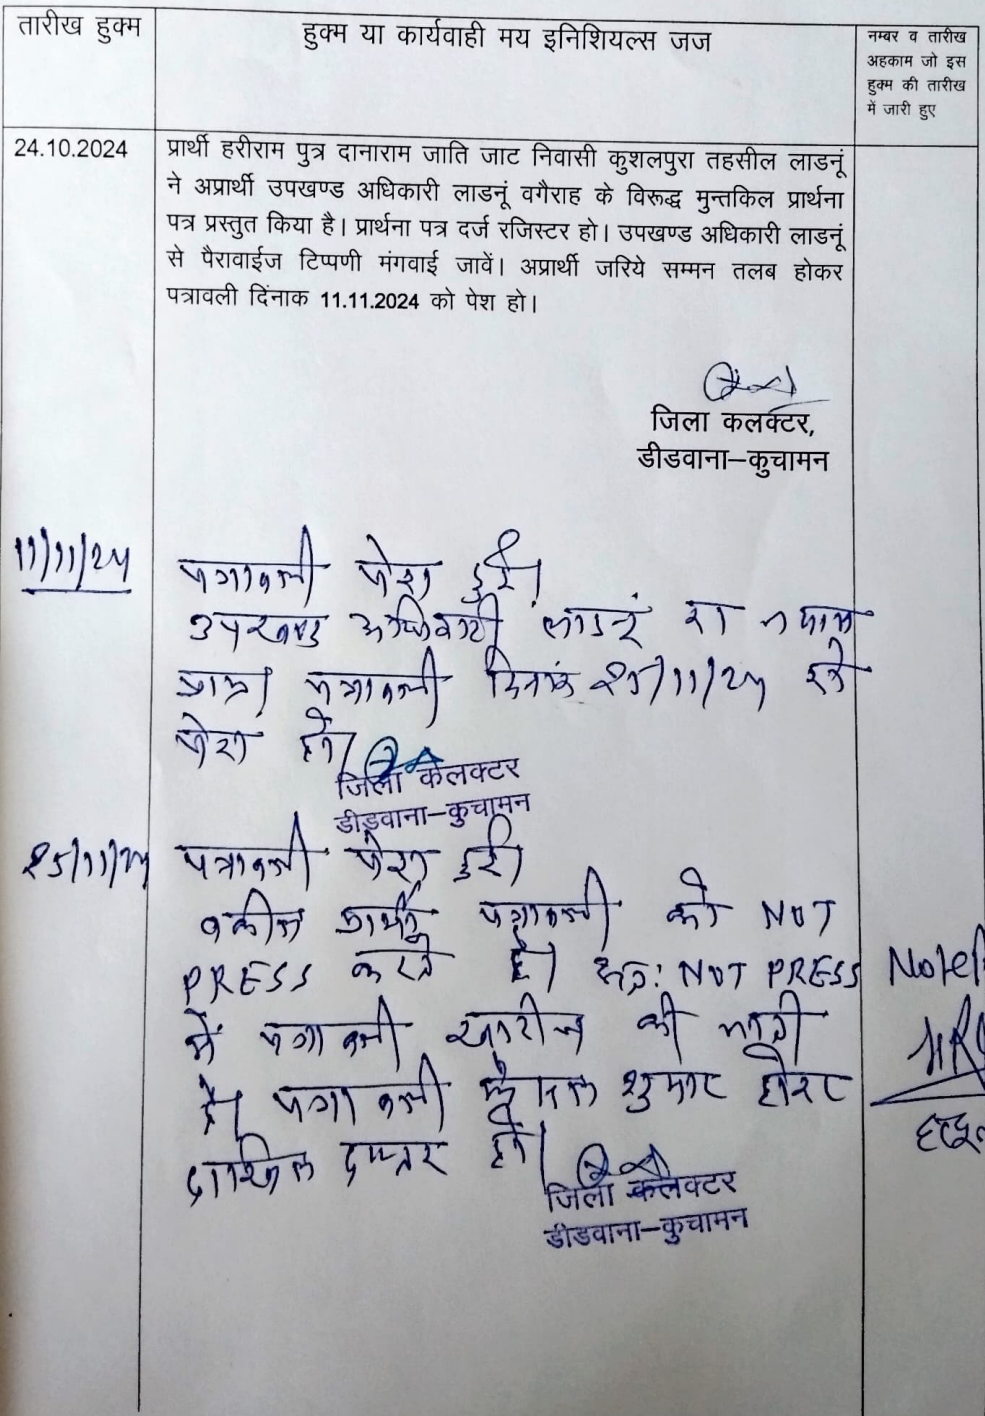 तारीख हुक्म
हुक्म या कार्यवाही मय इनिशियल्स जज
नम्बर व तारीख
अहकाम जो इस
हुक्म की तारीख
में जारी हुए
24.10.2024
प्रार्थी हरीराम पुत्र दानाराम जाति जाट निवासी कुशलपुरा तहसील लाडनूं
ने अप्रार्थी उपखण्ड अधिकारी लाडनूं वगैराह के विरूद्ध मुन्तकिल प्रार्थना
पत्र प्रस्तुत किया है। प्रार्थना पत्र दर्ज रजिस्टर हो। उपखण्ड अधिकारी लाडनूं
से पैरावाईज टिप्पणी मंगवाई जावें। अप्रार्थी जरिये सम्मन तलब होकर
पत्रावली दिंनाक 11.11.2024 को पेश हो।
जिला कलक्टर,
डीडवाना–कुचामन
11/11/24
पत्रावली पेश हुई।
उपखण्ड अधिकारी लाडनूं का
प्राप्त। पत्रावली दिनांक 25/11/24 को
पेश हो।
जिला कलक्टर
डीडवाना–कुचामन
25/11/24
पत्रावली पेश हुई।
वकील प्रार्थी पत्रावली को NOT
PRESS करते है। अतः NOT PRESS
में पत्रावली खारीज की जाती
है। पत्रावली फैसल शुमार होकर
दाखिल दफ्तर हो।
जिला कलक्टर
डीडवाना–कुचामन